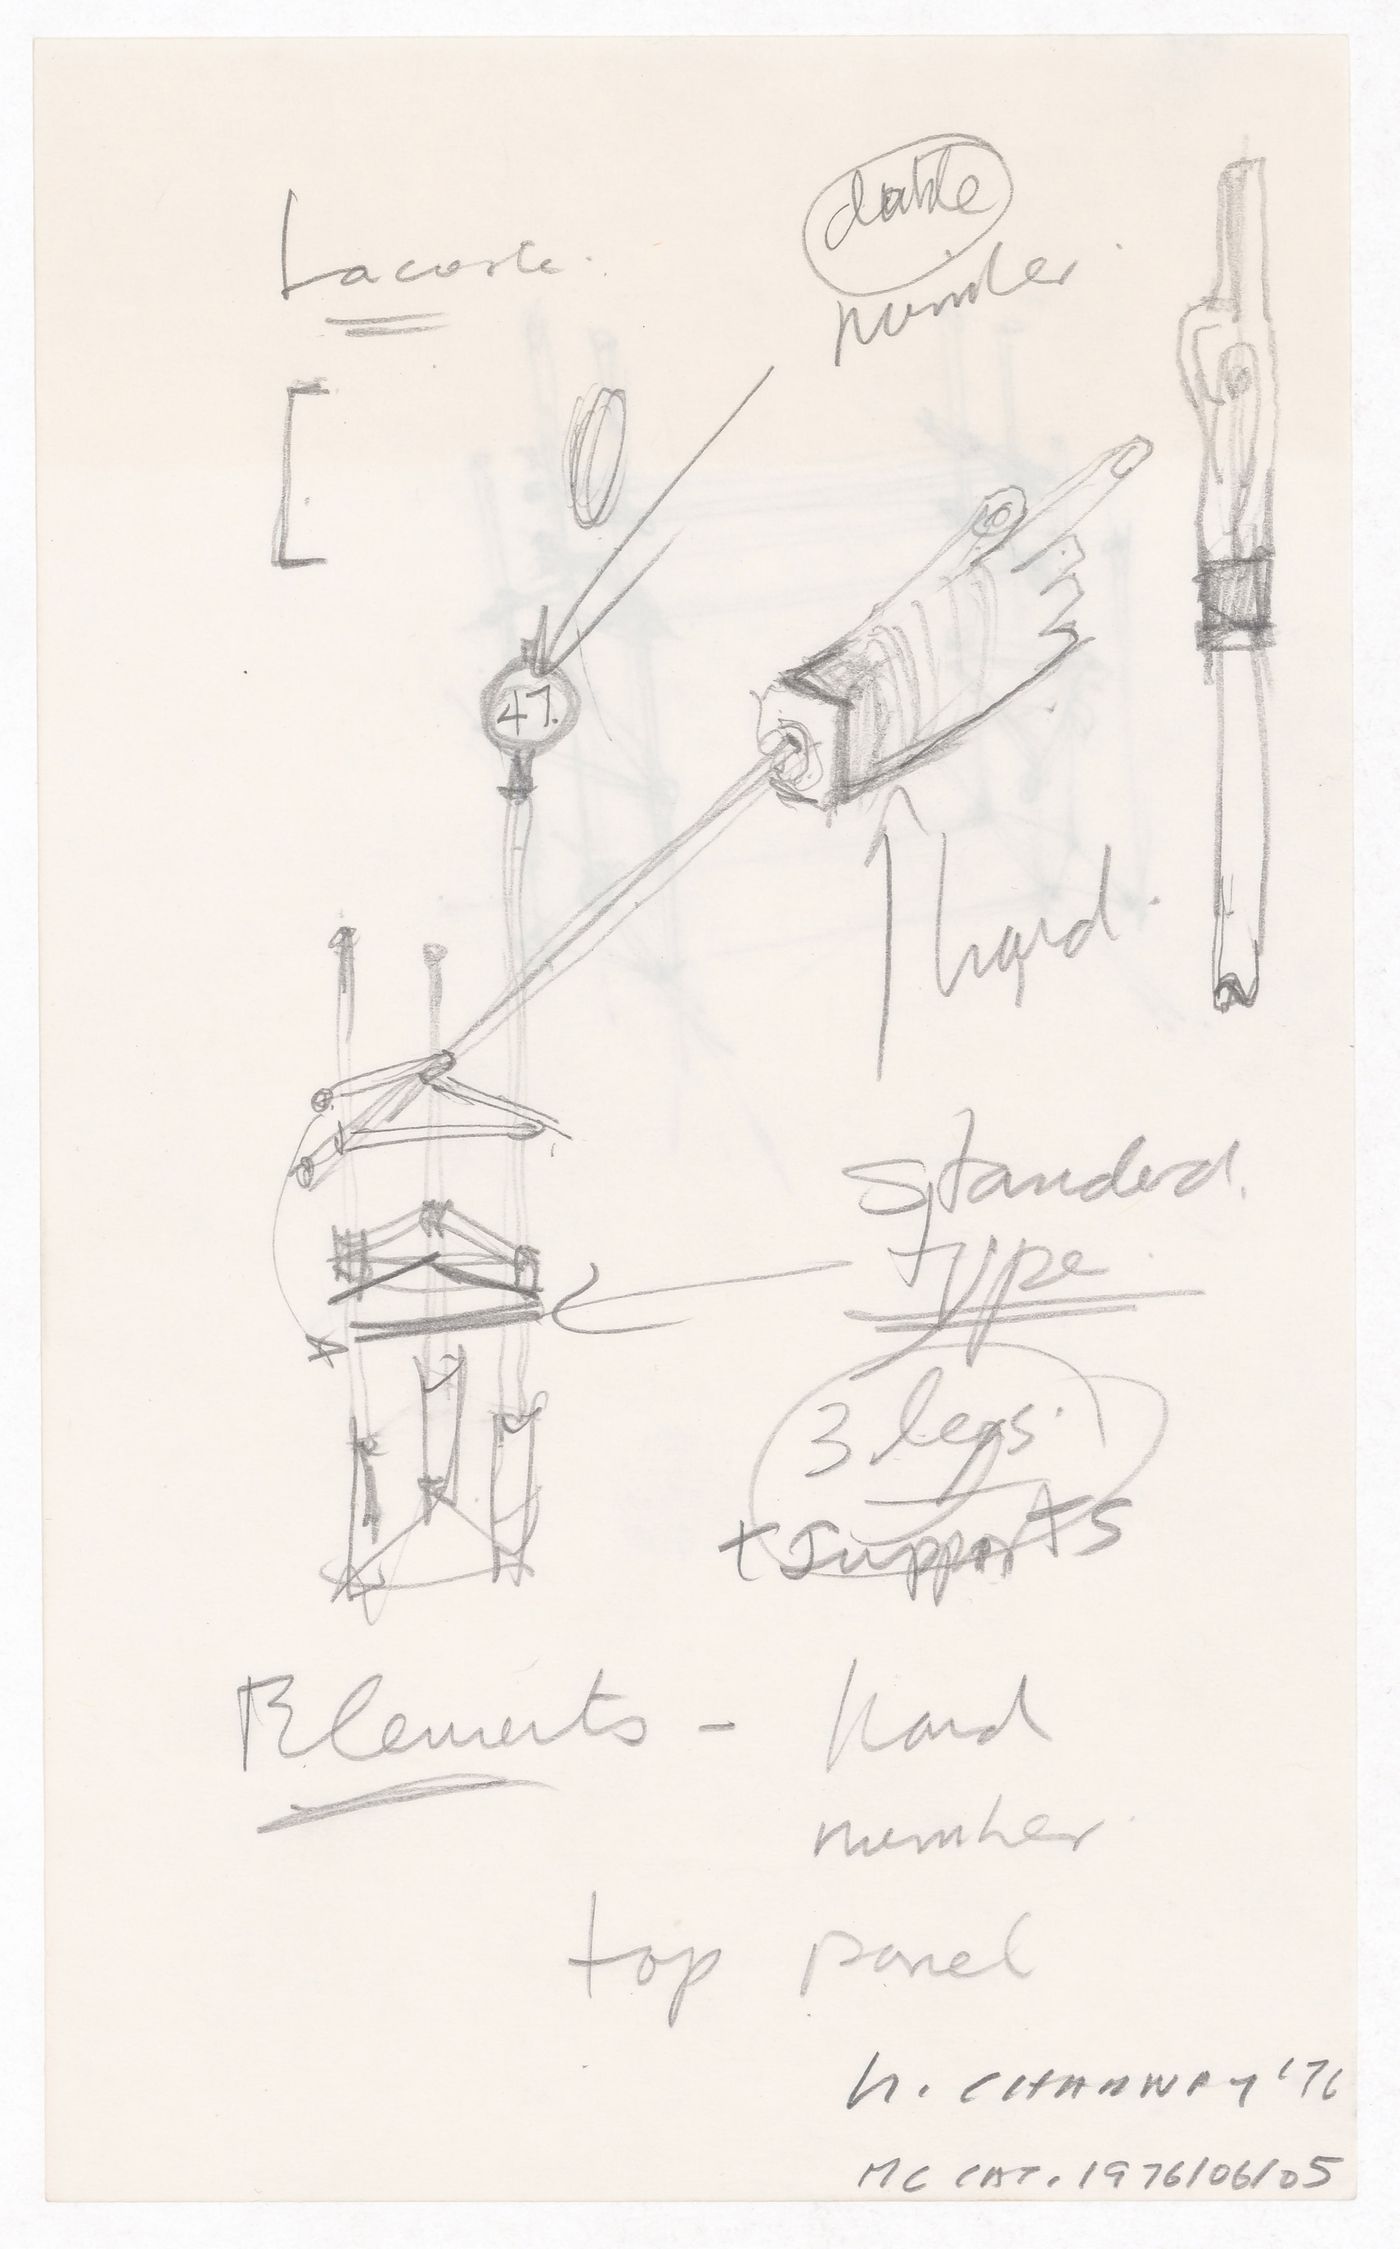 Lacoste.
double
number.
47.
hand.
Standard.
type.
3 legs.
+ supports
Elements - hand
number.
top panel
M. CHADWAY '76
MC CAT. 1976/06/05